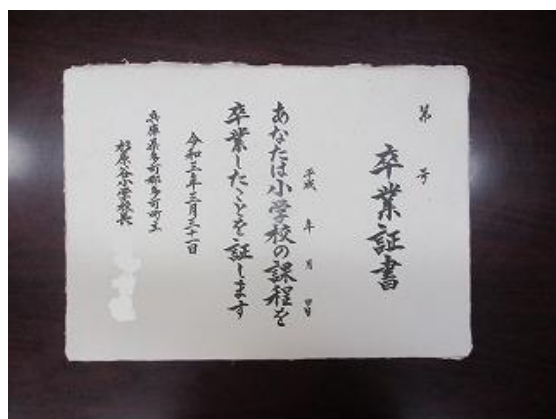 卒業証書
第　号
平成　年　月　日
あなたは小学校の課程を
卒業したことを証します
令和三年三月三十一日
兵庫県多可郡多可町立
杉原谷小学校長